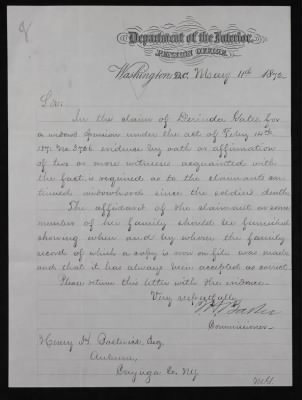 8
Department of the Interior,
PENSION OFFICE,
Washington, D.C. May 11th 1872
Sir:
In the claim of Derinda Yates for
a widow's pension under the act of Feby 14th
1871 No. 3706 evidence by oath or affirmation
of two or more witnesses acquainted with
the fact is required as to the claimant's con-
tinued widowhood since the soldier's death.
The affidavit of the claimant or some
member of her family should be furnished
showing when and by whom the family
record of which a copy is now on file was made
and that it has always been accepted as correct.
Please return this letter with the evidence.
Very respectfully
Baker
Commissioner
Henry H. Esq.
Auburn,
Cayuga Co. NY.